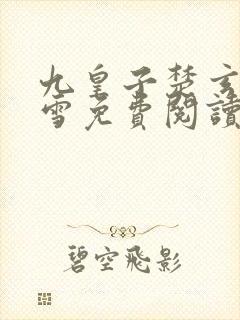 九皇子楚玄
雪免費閱讀
碧空飛影